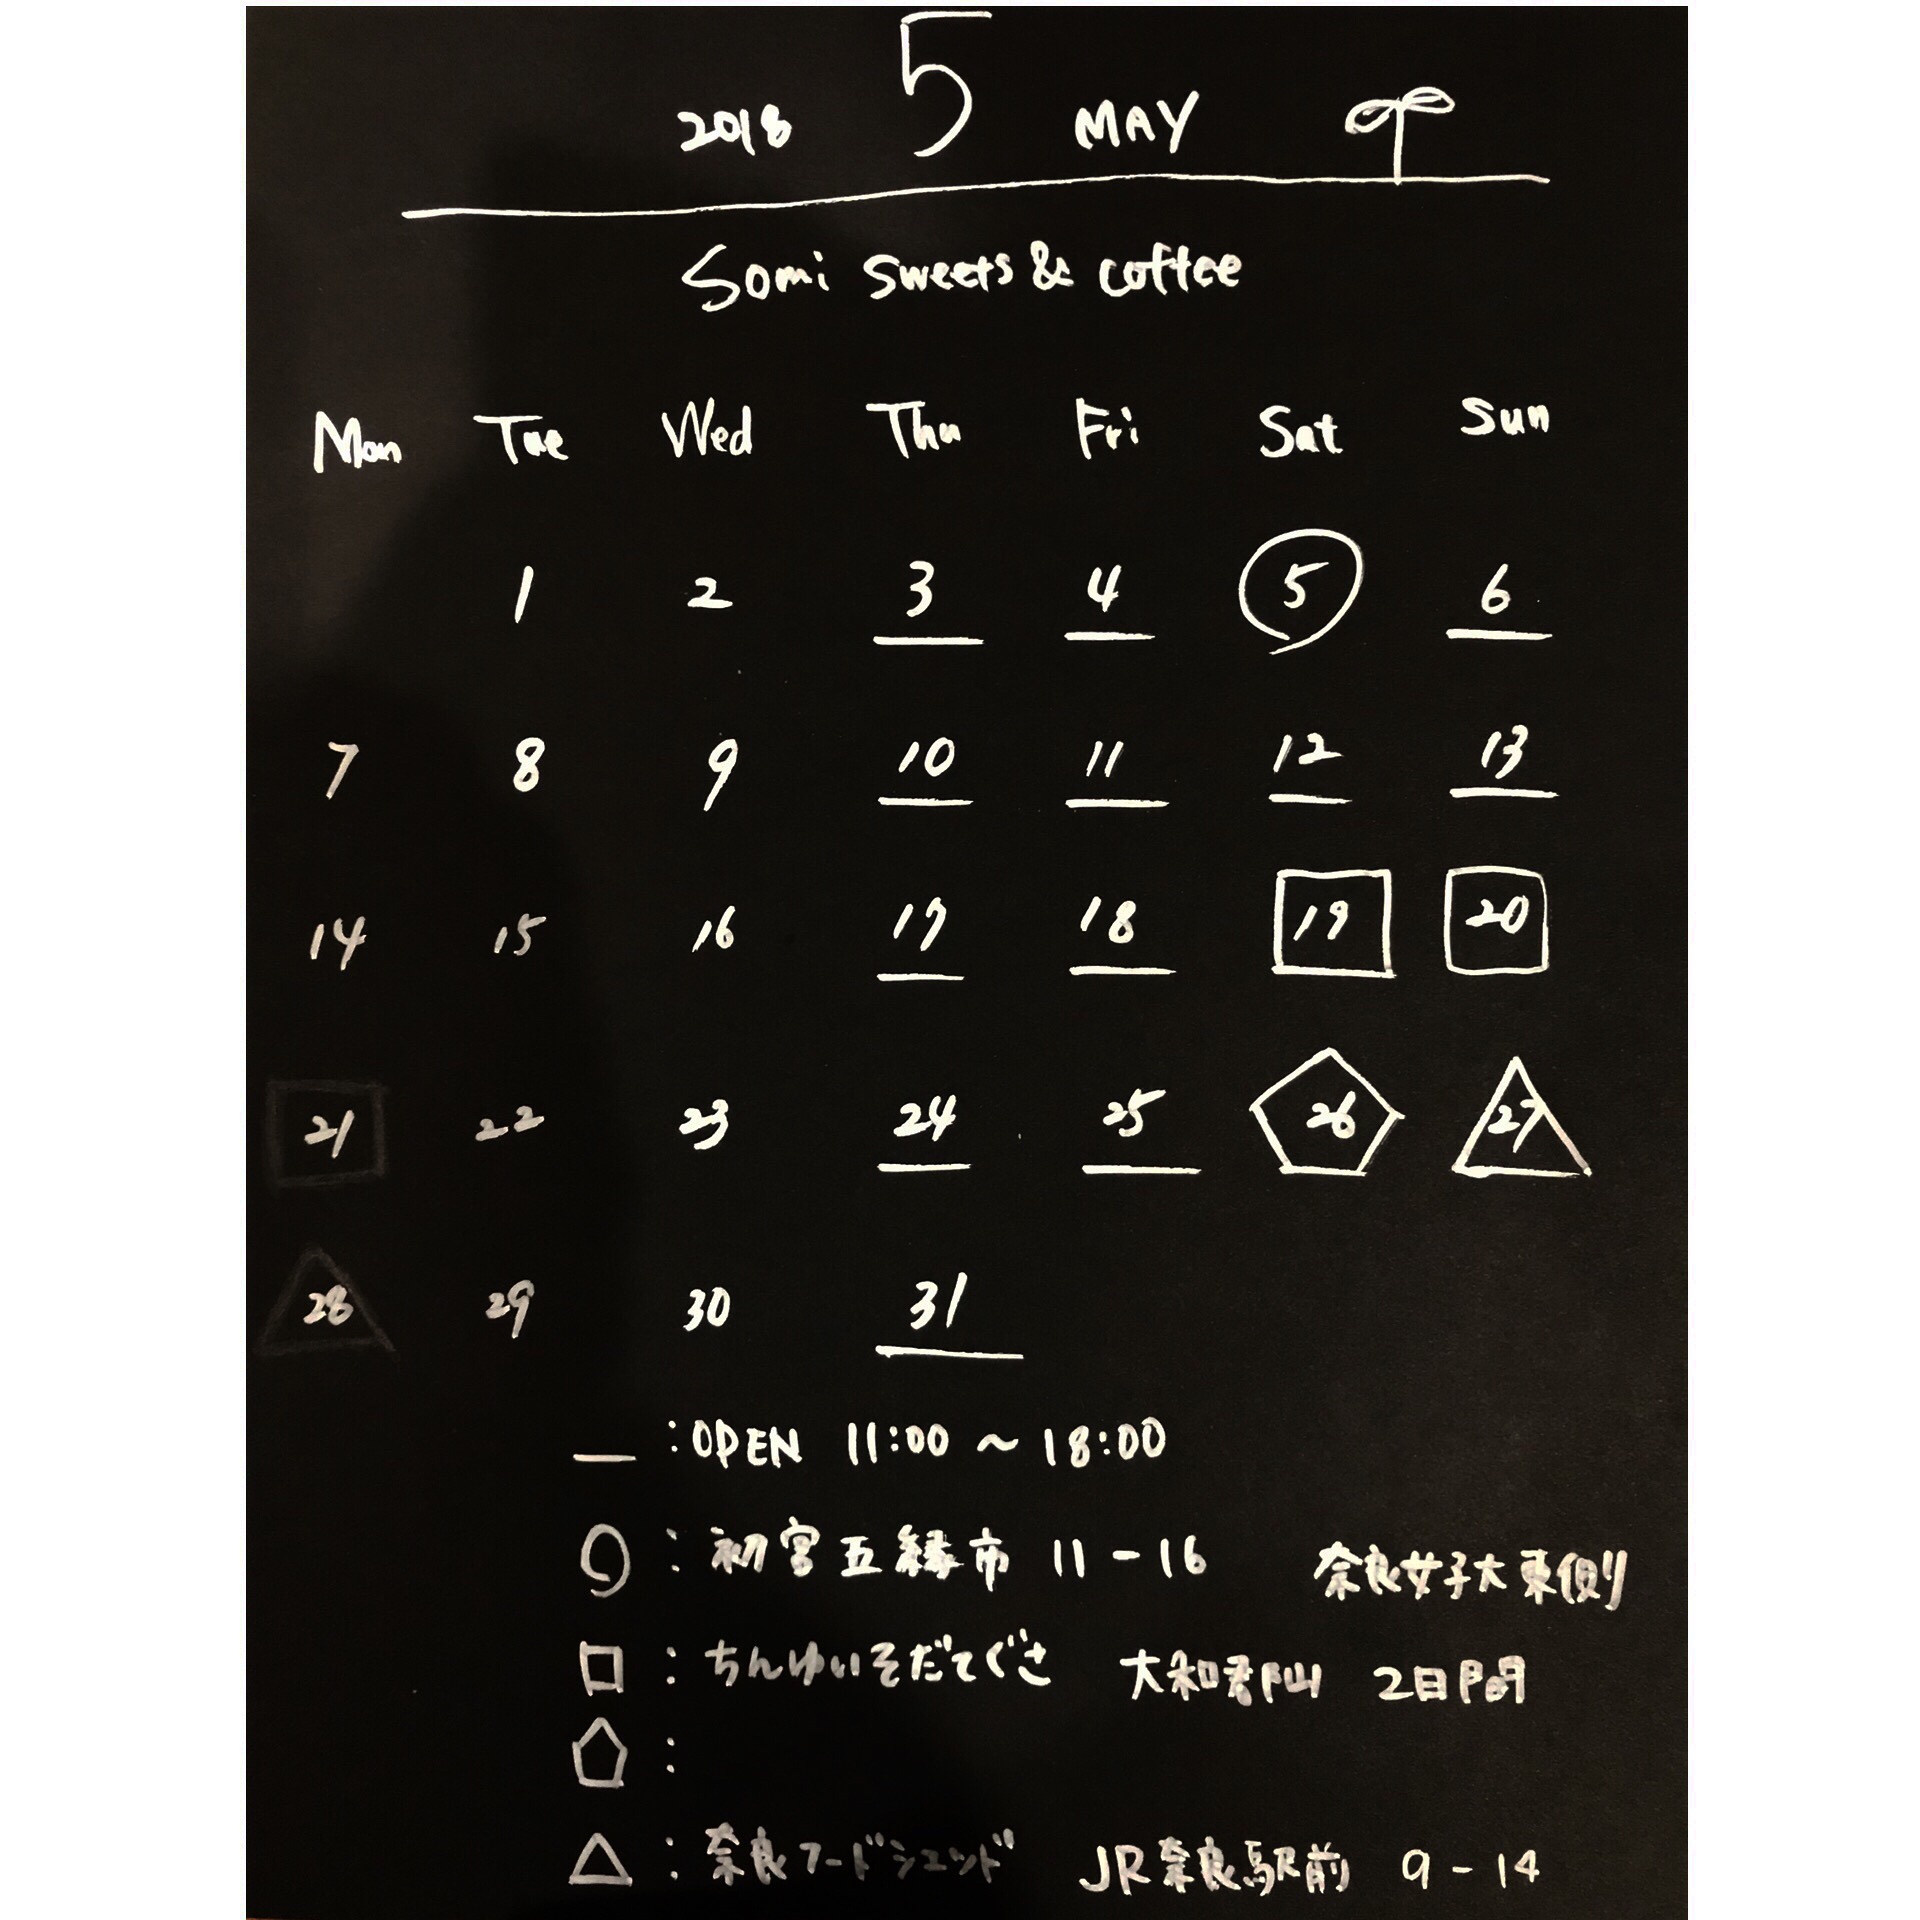 2018 5 MAY
Somi sweets & coffee
Mon Tue Wed Thu Fri Sat Sun
1 2 3 4 5 6
7 8 9 10 11 12 13
14 15 16 17 18 19 20
21 22 23 24 25 26 27
28 29 30 31
:OPEN 11:00 ~ 18:00
: 初宮五縁市 11-16 奈良女子大東側
: ちんゆいそだてぐさ 大和郡山 2日間
:
: 奈良フードシェッド JR奈良駅前 9-14